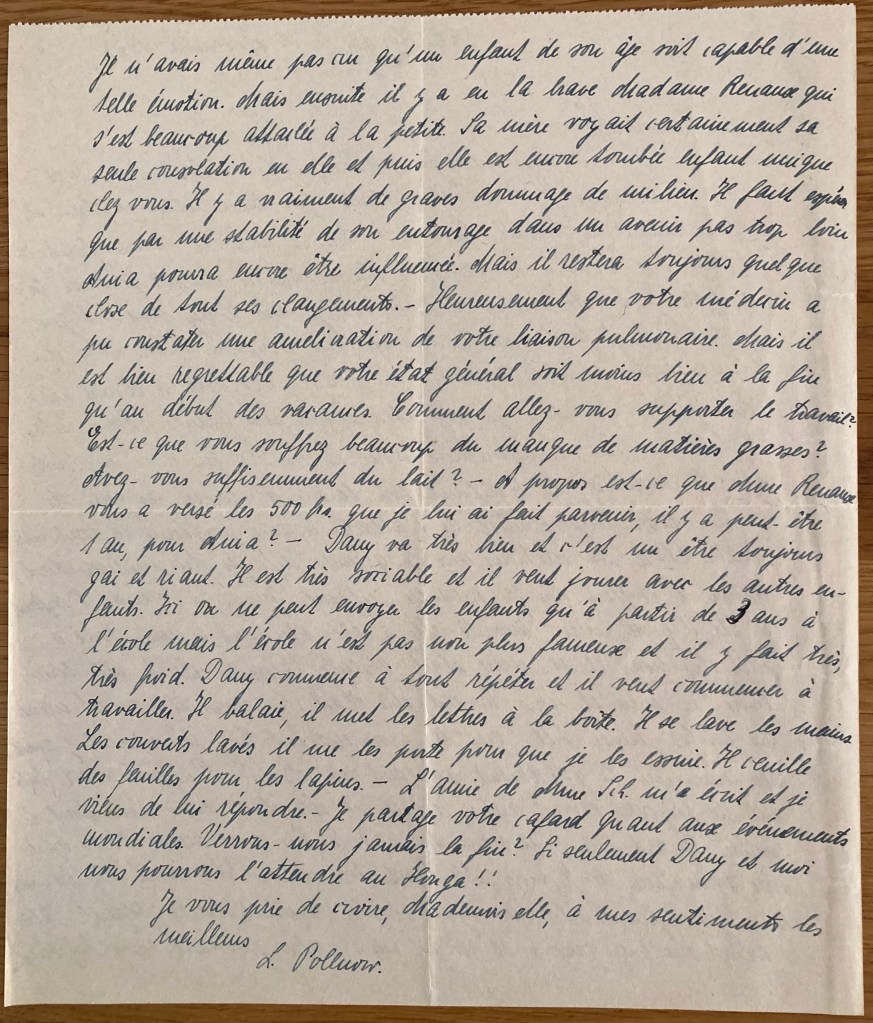 Je n'avais même pas cru qu'un enfant de son âge soit capable d'une
telle émotion. Mais ensuite il y a eu la brave Madame Renaux qui
s'est beaucoup attachée à la petite. Sa mère voyait certainement sa
seule consolation en elle et puis elle est encore tombée enfant unique
chez vous. Il y a vraiment de graves dommage de milieu. Il faut espérer
que par une stabilité de son entourage dans un avenir pas trop loin
Ania pourra encore être influencée. Mais il restera toujours quelque
chose de tout ses changements. – Heureusement que votre médecin a
pu constater une amélioration de votre liaison pulmonaire. Mais il
est bien regrettable que votre état général soit moins bien à la fin
qu'au début des vacances. Comment allez-vous supporter le travail?
Est-ce que vous souffrez beaucoup du manque de matières grasses?
Avez-vous suffisemment du lait? – A propos est-ce que Mme Renaux
vous a versé les 500 frs. que je lui ai fait parvenir, il y a peut-être
1 an, pour Ania? – Dany va très bien et c'est un être toujours
gai et riant. Il est très sociable et il veut jouer avec les autres en-
fants. Ici on ne peut envoyer les enfants qu'à partir de 3 ans à
l'école mais l'école n'est pas non plus fameuse et il y fait très,
très froid. Dany commence à tout répéter et il veut commencer à
travailler. Il balaie, il met les lettres à la boîte. Il se lave les mains.
Les couverts lavés il me les porte pour que je les essuie. Il cueille
des feuilles pour les lapins. – L'amie de Mme Sch. m'a écrit et je
viens de lui répondre. – Je partage votre cafard quant aux événements
mondiales. Verrons-nous jamais la fin? Si seulement Dany et moi
nous pourrons l'attendre au Honga!!
Je vous prie de croire, Mademoiselle, à mes sentiments les
meilleurs
L. Pollnow.